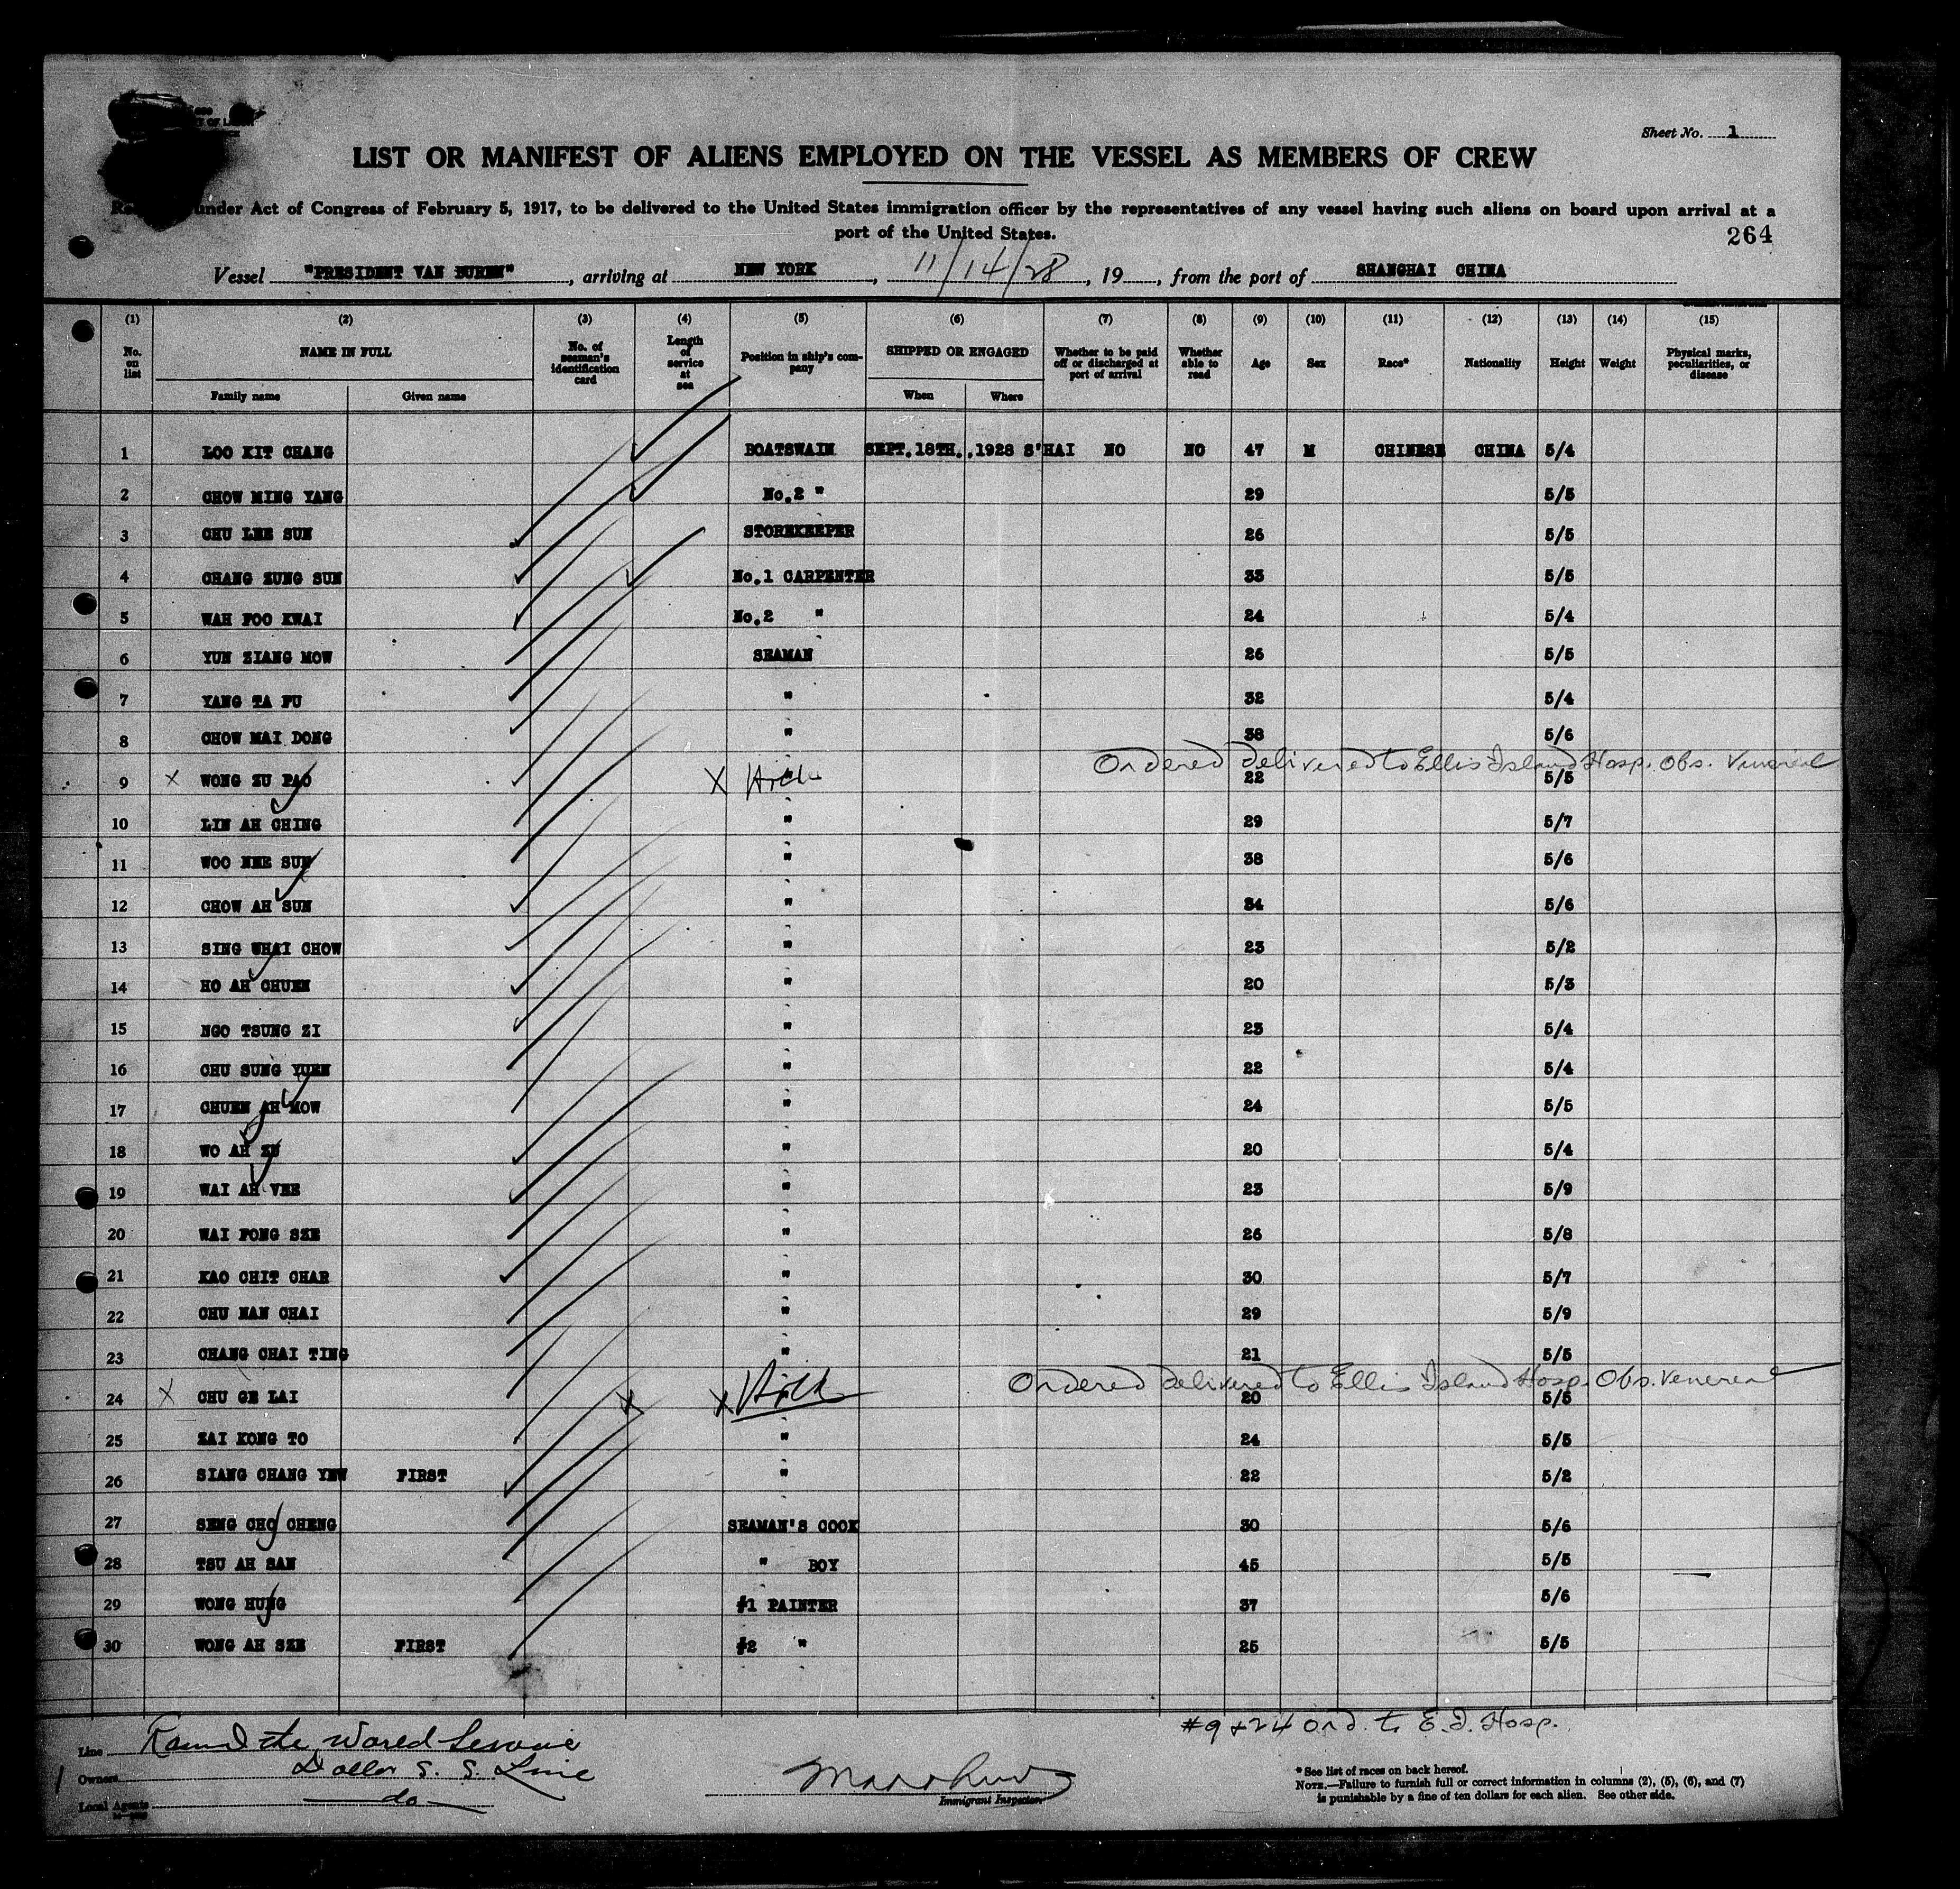 Sheet No. 1
LIST OR MANIFEST OF ALIENS EMPLOYED ON THE VESSEL AS MEMBERS OF CREW
under Act of Congress of February 5, 1917, to be delivered to the United States immigration officer by the representatives of any vessel having such aliens on board upon arrival at a
port of the United States.
264
Vessel "PRESIDENT VAN BUREN", arriving at NEW YORK, 11/14/28, 19__, from the port of SHANGHAI CHINA
(1) (2) (3) (4) (5) (6) (7) (8) (9) (10) (11) (12) (13) (14) (15)
No. on list NAME IN FULL No. of seaman's identification card Length of service at sea Position in ship's company SHIPPED OR ENGAGED Whether to be paid off or discharged at port of arrival Whether able to read Age Sex Race* Nationality Height Weight Physical marks, peculiarities, or disease
Family name Given name When Where
1 LOO KIT CHANG BOATSWAIN SEPT.18TH.,1928 S'HAI NO NO 47 M CHINESE CHINA 5/4
2 CHOW MING YANG No.2 " 29 5/5
3 CHU LEE SUN STOREKEEPER 26 5/5
4 CHANG ZUNG SUN No.1 CARPENTER 33 5/5
5 WAH FOO KWAI No.2 " 24 5/4
6 YUN ZIANG MOW SEAMAN 26 5/5
7 YANG TA FU " 32 5/4
8 CHOW MAI DONG " 38 5/6
Ordered delivered to Ellis Island Hosp. Obs. Venereal
9 X WONG ZU PAO X " 22 5/5
10 LIN AH CHING " 29 5/7
11 WOO NEE SUN " 38 5/6
12 CHOW AH SUN " 34 5/6
13 SING WHAI CHOW " 23 5/2
14 HO AH CHUEN " 20 5/3
15 NGO TSUNG ZI " 23 5/4
16 CHU SUNG YUEN " 22 5/4
17 CHUEN AH MOW " 24 5/5
18 WO AH ZU " 20 5/4
19 WAI AH VEE " 23 5/9
20 WAI FONG SZE " 26 5/8
21 KAO CHIT CHAR " 30 5/7
22 CHU NAN CHAI " 29 5/9
23 CHANG CHAI TING " 21 5/5
Ordered delivered to Ellis Island Hosp. Obs. Venereal
24 X CHU GE LAI X X 20 5/5
25 ZAI KONG TO " 24 5/5
26 SIANG CHANG YEW FIRST " 22 5/2
27 SENG CHO CHENG SEAMAN'S COOK 30 5/6
28 TSU AH SAN " BOY 45 5/5
29 WONG HUNG #1 PAINTER 37 5/6
30 WONG AH SZE FIRST #2 " 25 5/5
#9 & 24 ord. to E.I. Hosp.
Line Round the World Service
Owners Dollar S. S. Line
Local Agents do
Immigrant Inspector
* See list of races on back hereof.
NOTE.—Failure to furnish full or correct information in columns (2), (5), (6), and (7)
is punishable by a fine of ten dollars for each alien. See other side.